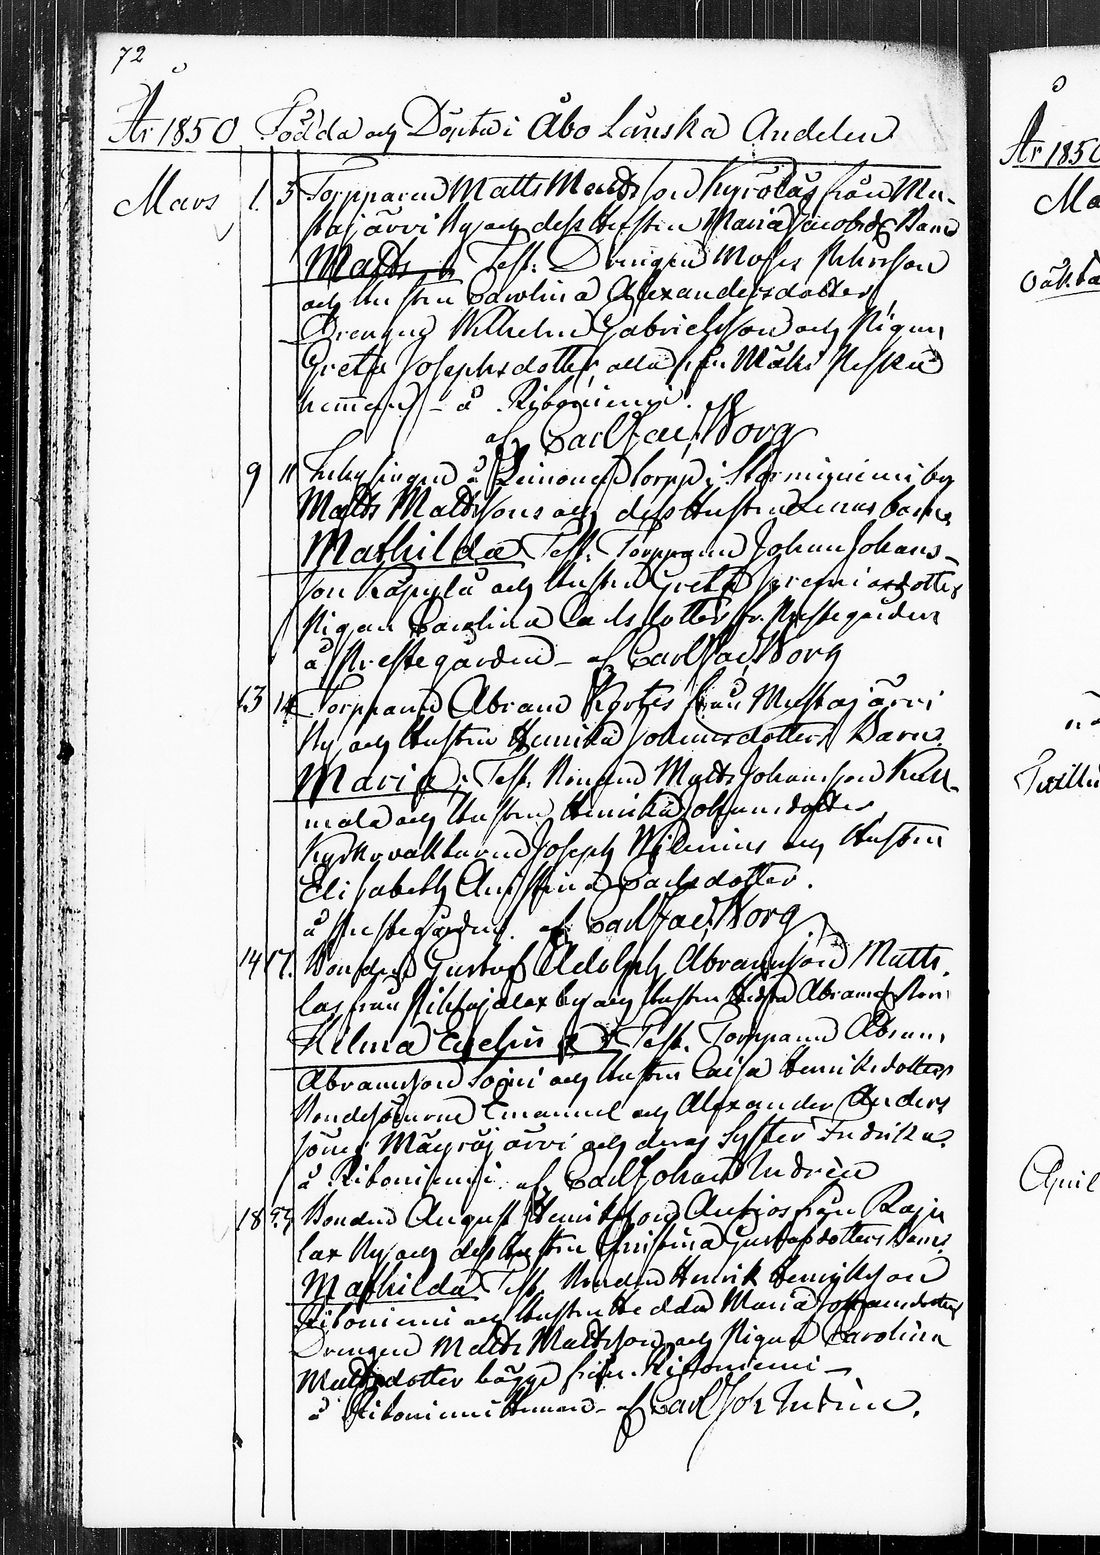 72
År 1850 Födda och Döpta i Åbo Länska Andelen
Mars 1. 3 Torpparen Matts Mattsson Kyrölä från Mu-
stajärvi By och dess Hustru Maria Jacobsd. Barn
Matts Test: Drengen Moses
och Hustru Carolina Alexandersdotter,
Drengen Wilhelm Gabrielsson och Pigan
Greta Josephsdotter, alla från Mäki
hemman - å Riboniemi.
af Carl Jac. Borg
9 11 å torpp i Storminiemi by
Matts Mattssons och dess Hustru barn
Mathilda Test: Torpparen Johan Johans-
son Käpylä och Hustru Greta Jeremiasdotter
Pigan Carolina Carlsdotter fr. Prestegården
å Prestegården - af Carl Jac. Borg
13 14 Torpparen Abram från Mustajärvi
By och Hustru Henrika Johansdotters Barn
Maria; Test: Bonden Matts Johansson
mala och Hustru Henrika Johansdotter,
Kyrkovaktaren Joseph och Hustru
Elisabeth Carlsdotter.
å Prestegården. af Carl Jac. Borg
14 17. Bonden Gustaf Adolph Abramsson Matti-
las från by och Hustru Abramsd. Barn
Helma Evelina Test: Torpparen Abram
Abramsson Soini och Hustru Caisa Henriksdotter
Bondesönerne Emanuel och Alexander Anders
söner Mäyräjärvi och deras Syster Fredrika.
å Riboniemi. af Carl Johan Indrèn
18 Bonden August Henriksson Anttios från Raju
lax By och dess Hustru Christina Gustafsdotters Barn
Mathilda Test: Bonden Henrik Henriksson
Riboniemi och Hustru Hedda Maria Johansdotter
Drengen Matts Mattsson och Pigan Carolina
Mattsdotter bägge från Riboniemi -
å Riboniemi Hemman - af Carl Joh Indrèn.
År 1850
Ma
April